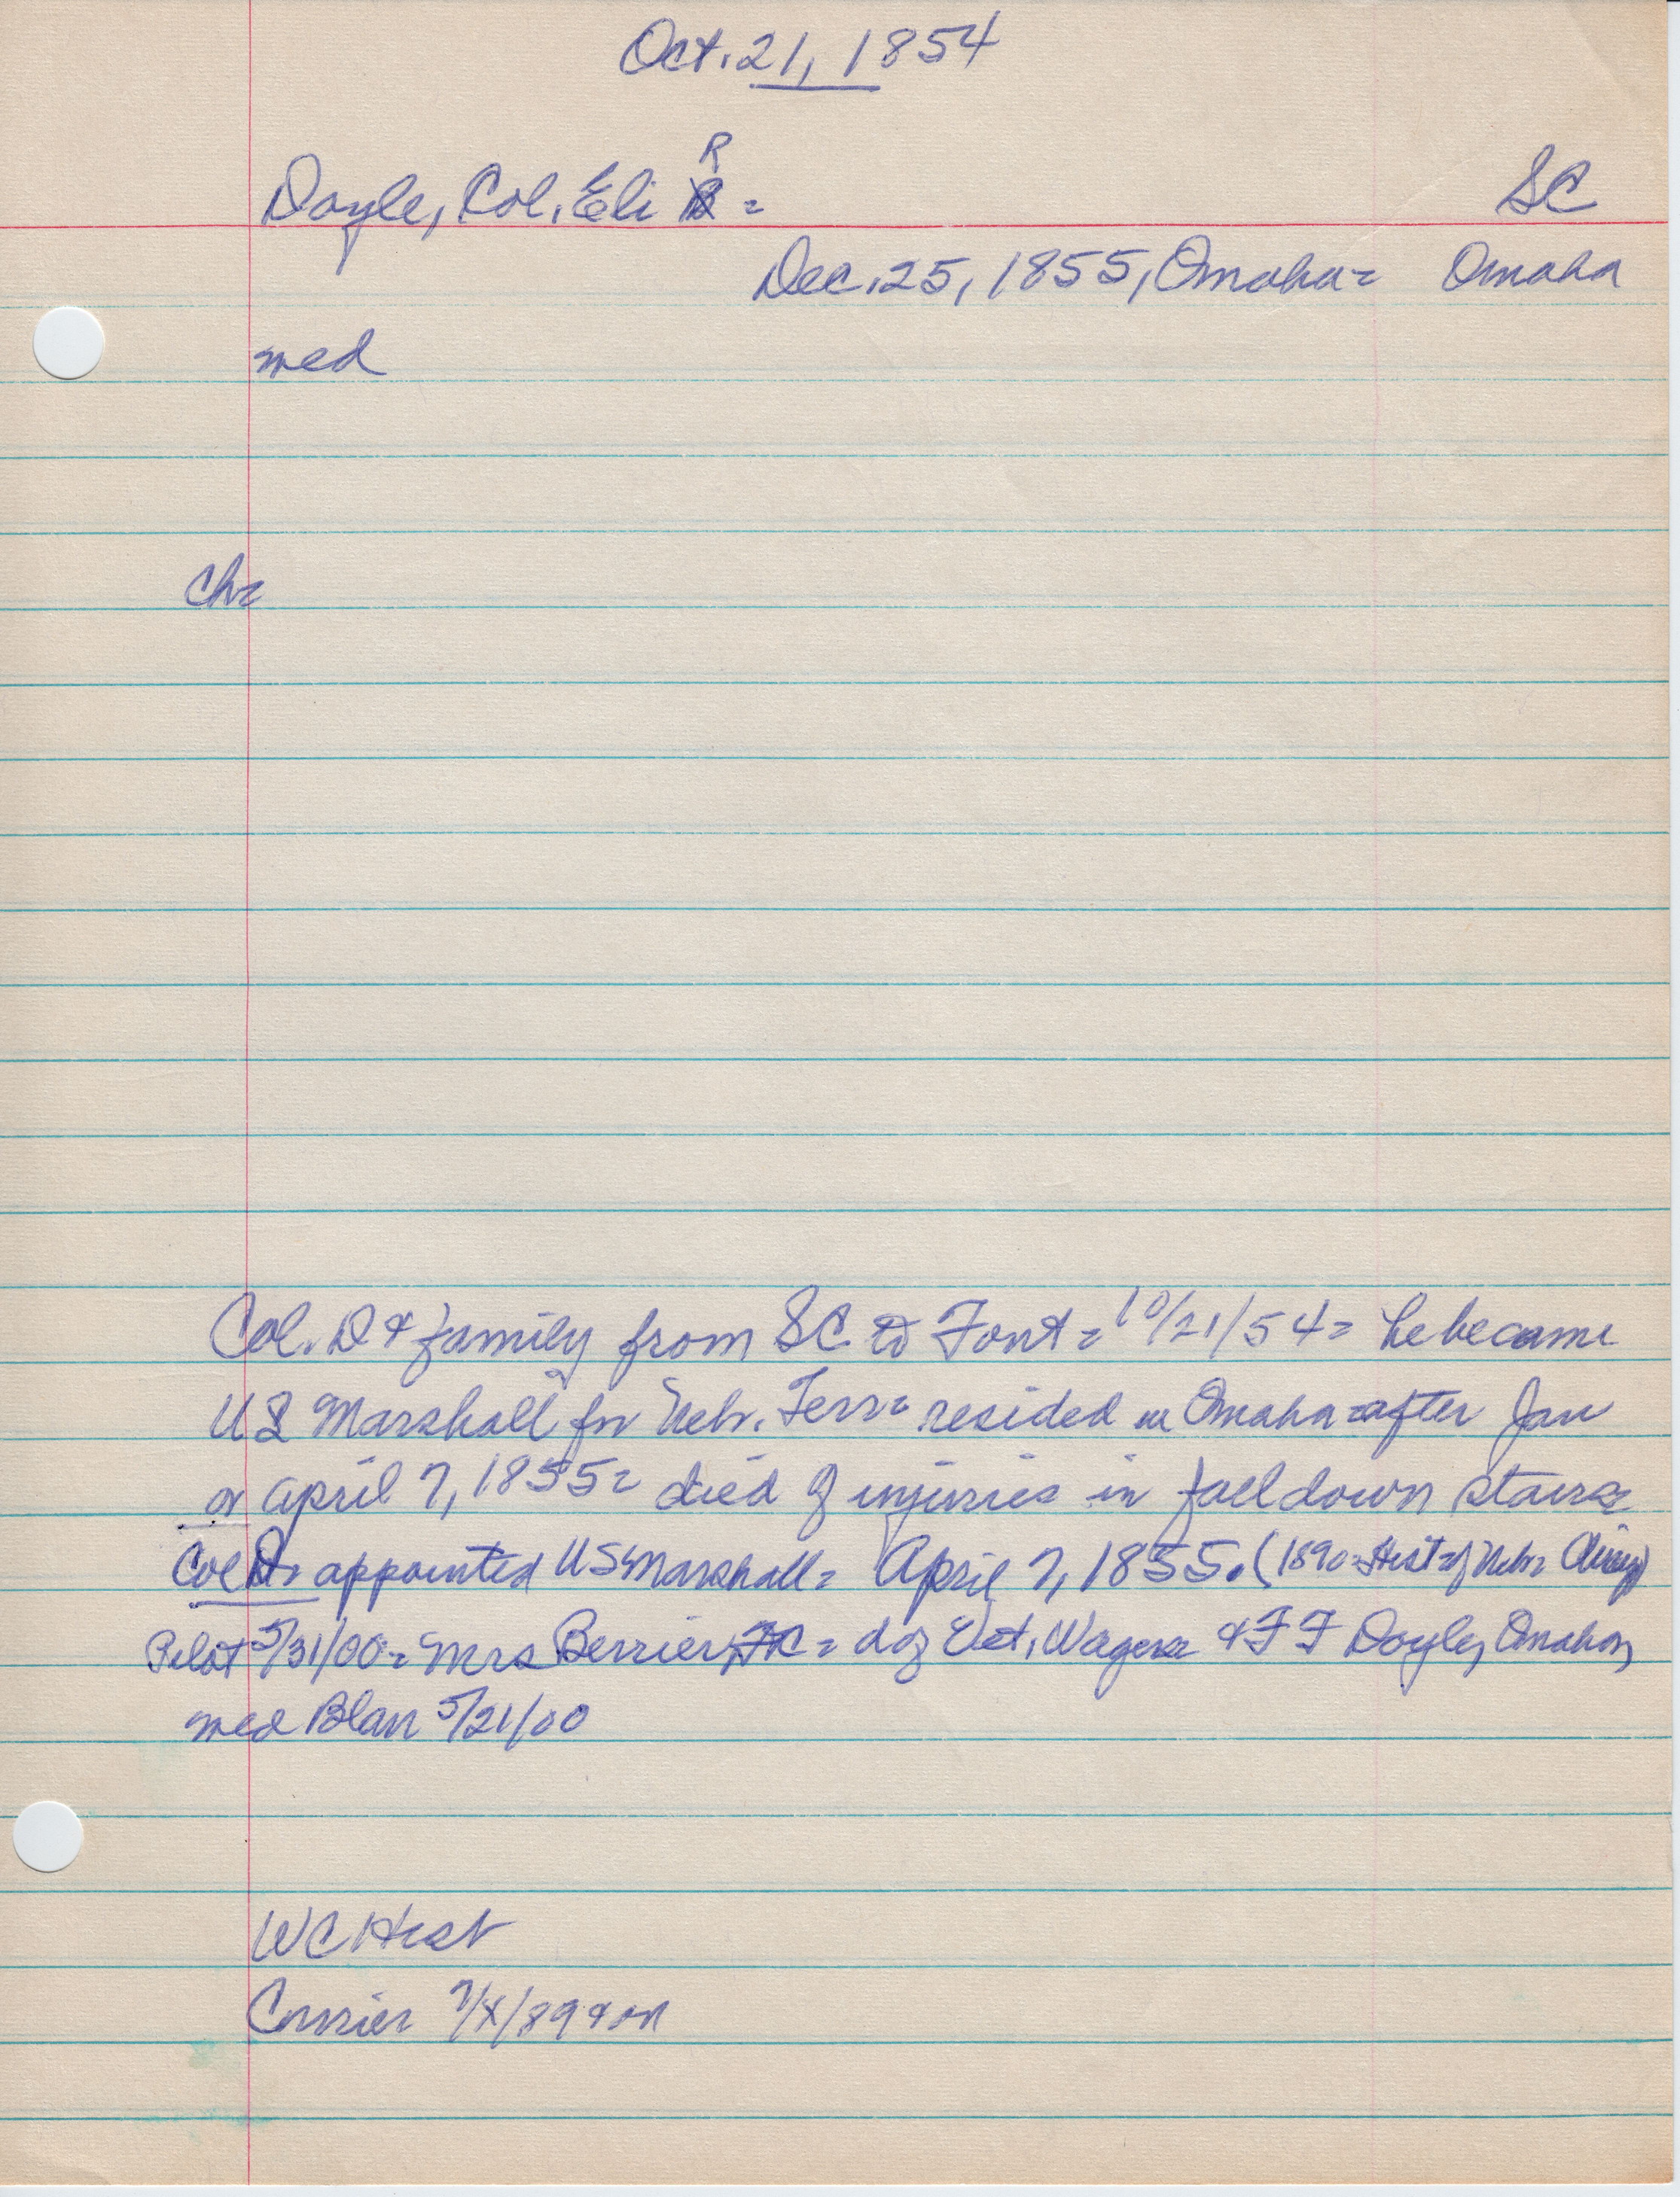 Oct. 21, 1854
R
Doyle, Col. Eli = SC
Dec. 25, 1855, Omaha = Omaha
med
Ch=
Col. D & family from SC to Font = 10/21/54 = he became
US Marshall for Nebr. Terr = resided in Omaha = after Jan
or April 7, 1855 = died of injuries in fall down stairs
Col D = appointed US Marshall = April 7, 1855. (1890 = Hist of Nebr =
Pilot 5/31/00 = Mrs Berrier, = d of Vet, & F F Doyle, Omaha,
med Blair 5/21/00
WC Hist
Courier 7/4/89 & on